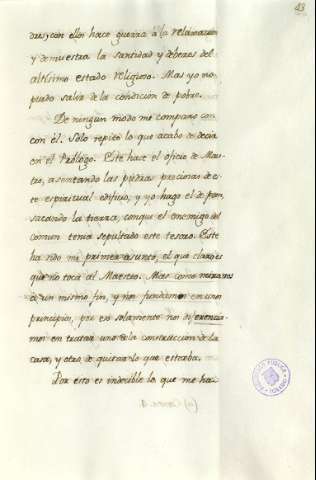 43
dres; con ellos hace guerra à la relaxacion
y demuestra la santidad y deberes del
altísimo estado religioso. Mas yo no
puedo salir de la condicion de pobre.
De ningun modo me comparo con
con él. Sólo repito lo que acabo de decir
en el Prólogo. Este hace el oficio de Maes-
tro, asentando las piedras preciosas de es-
te espiritual edificio, y yo hago el de peon,
sacando la tierra, con que el enemigo del
comun tenia sepultado este tesoro. Este
ha sido mi primer asunto, el que claro es
que no toca al Maestro. Mas como miramos
à un mismo fin, y nos fundamos en unos
principios, por eso solamente nos diferencia-
mos en tratar uno de la construccion de la
casa, y otro de quitar lo que estorba.
Por esto es indecible lo que me ha